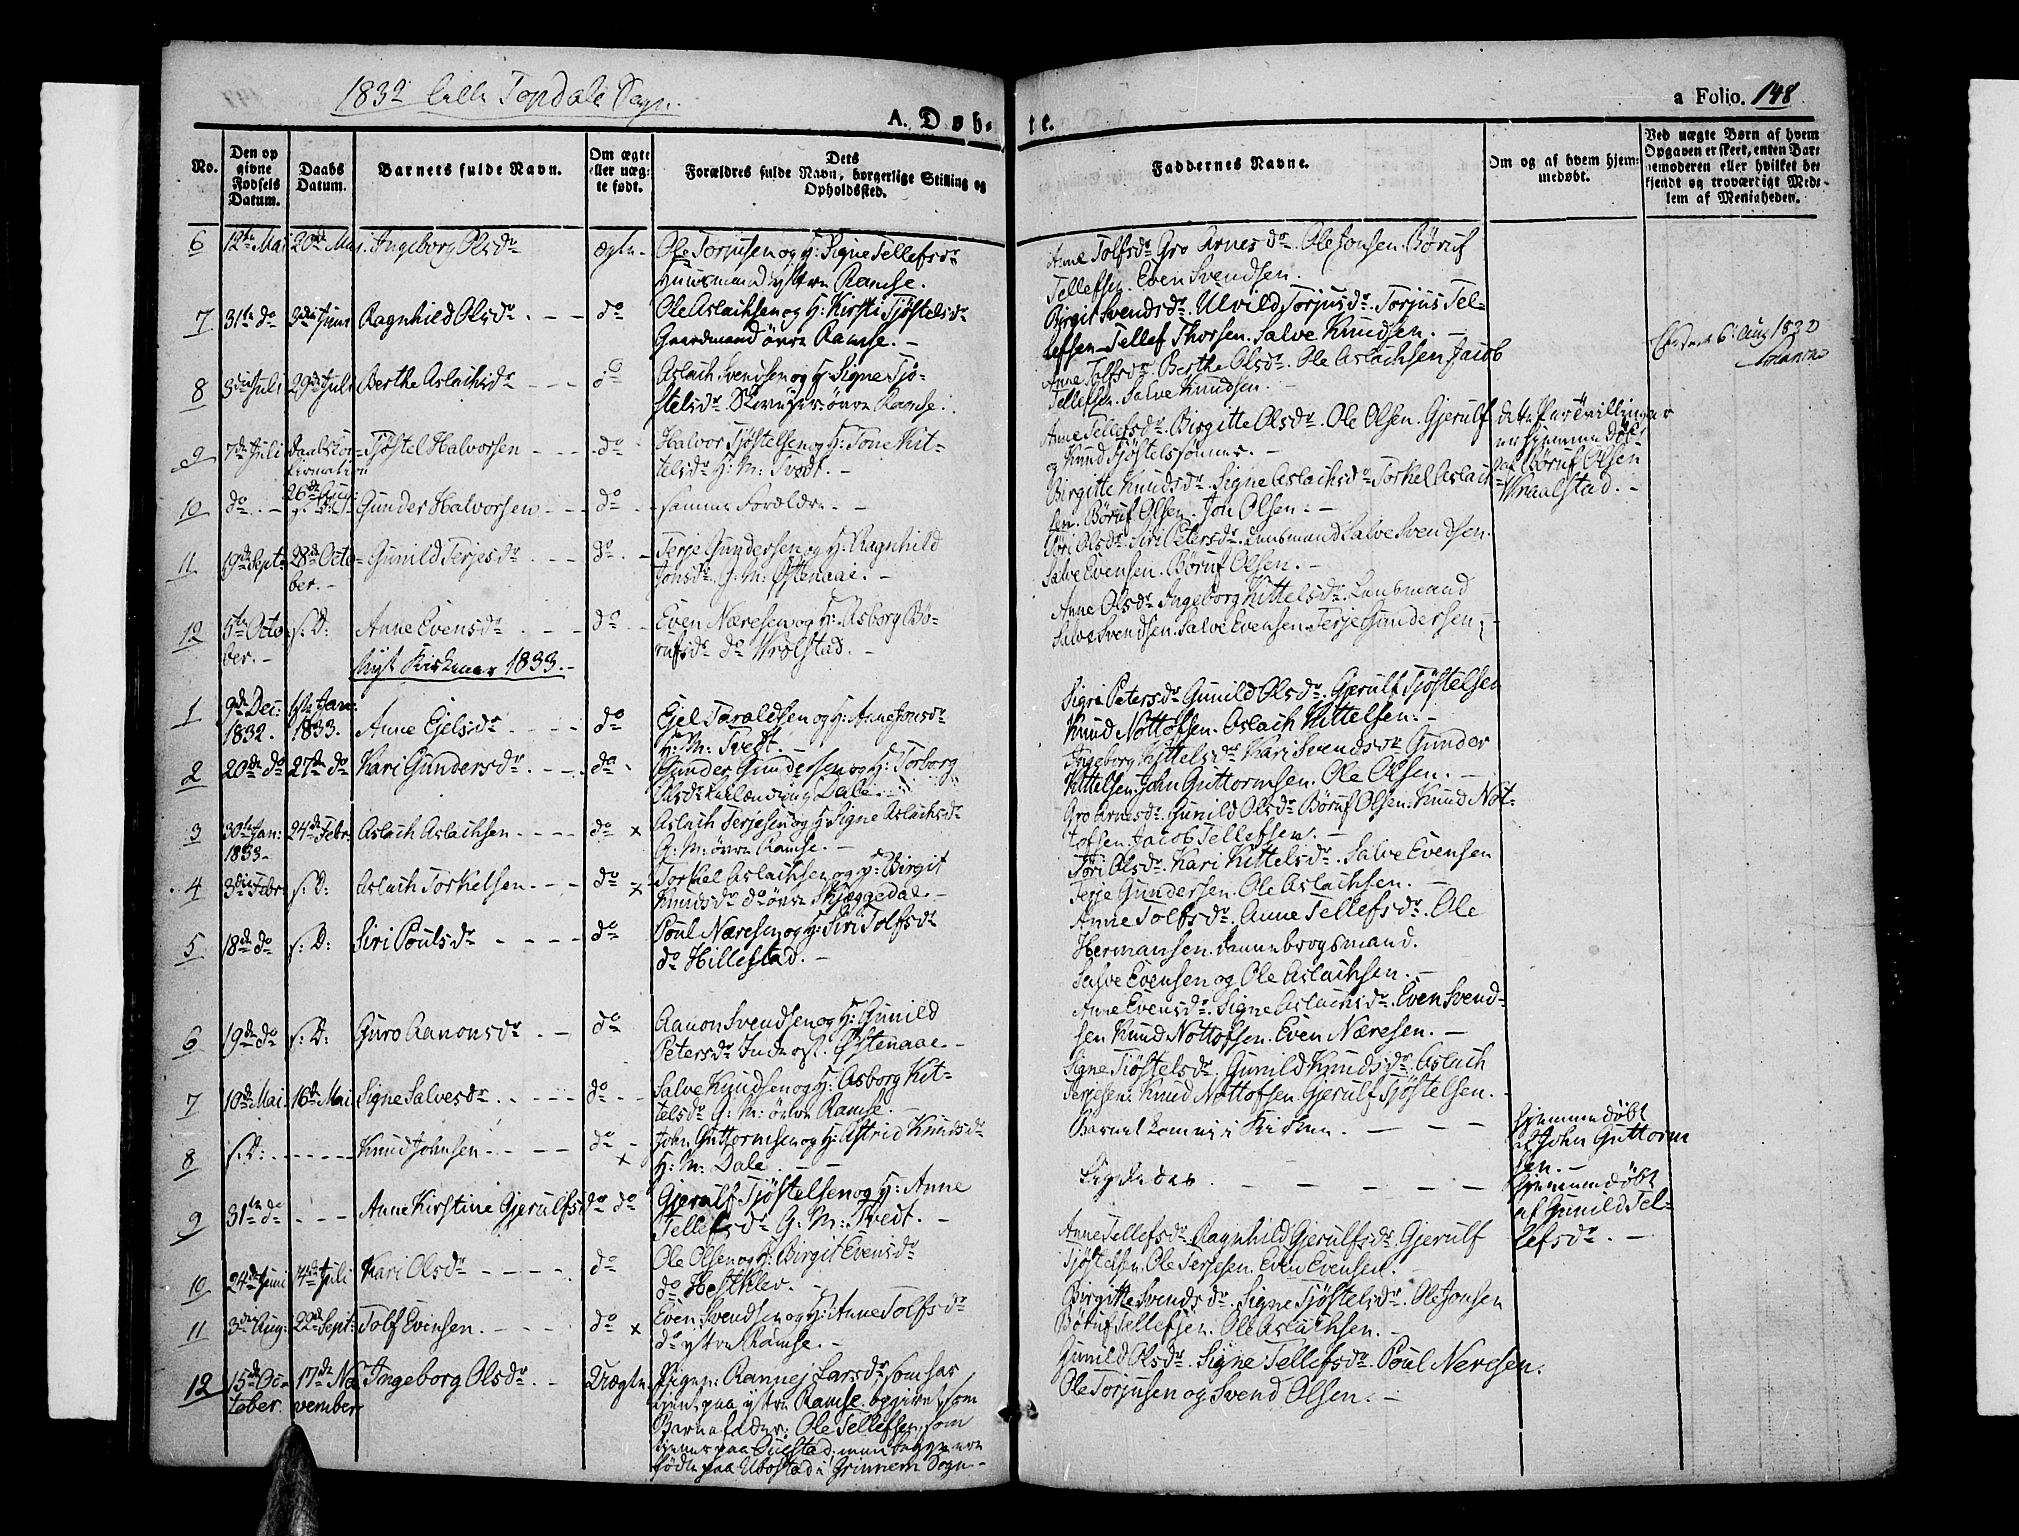 1832 Lille Topdals Sogn.
A. Døb-
te.
a Folio. 148
No.
Den op
givne
Fødsels
Datum.
Daabs
Datum.
Barnets fulde Navn.
Om ægte
eller uæg-
te født.
Dets
Forældres fulde Navn, borgerlige Stilling og
Opholdssted.
Faddernes Navne.
Om og af hvem hjem-
medøbt.
Ved uægte Børn af hvem
Opgaven er skeet, enten Bar-
nemoderen eller hvilket be-
kjendt og troværdigt Med-
lem af Menigheden.
6 12te Mai 20de Mai Ingeborg Olsdr ægte - Ole Torjusen og H: Signe Tellefsdr
Huusmand ystre Ramse.
Anne Tolfsdr Gro Arnesdr. Ole Jonsen. Børuf
Tellefsen. Even Svendsen.
7 31te do 3die Juni Ragnhild Olsdr - - do Ole Aslachsen og H: Kirsti Tjøstelsdr
Gaardmand övre Ramse. -
Birgit Svendsdr. Ulvild Torjusdr. Torjus Tel-
lefsen - Tellef Thorsen. Salve Knudsen. -
8 3die Juli 29de Juli Berthe Aslachsdr - - - do Aslach Svendsen og H: Signe Tjø-
stelsdr. övre Ramse.
Anne Tolfsdr. Berthe Olsdr. Ole Aslachsen Jacob
Tellefsen. Salve Knudsen. -
6 Aug 1832
9 7de Juli Tjøstel Halvorsen do Halvor Tjøstelsen og H: Tone Kit-
telsdr H: M: Tvedt. -
Anne Tellefsdr. Birgitte Olsdr. Ole Olsen. Gjerulf
og Knud Tjøstelsønner. -
dette Par Tvillinger
er hjemmedøbt
af Børuf Olsen
Wraalstad. -
10 do - 26de Aug: Gunder Halvorsen - - do - samme Forældre. -
Birgitte Knudsdr. Signe Aslachsdr Torkel Aslach-
sen. Børuf Olsen. Jon Olsen. -
11 19de Sept: 28de Octo-
ber. - Gunild Terjesdr. - - do. - Terje Gundersen og H: Ragnhild
Jonsdr. G: M: Østenaae. -
Töri Olsdr. Siri Petersdr. Lensmand Salve Svendsen.
Salve Evensen. Børuf Olsen. -
12 5te Octo-
ber. - s: D: Anne Evensdr. - - do - Even Næresen og H: Asborg Bø-
rufsdr do Wrolstad. -
Anne Olsdr. Ingeborg Kittelsdr. Lensmand
Salve Svendsen. Salve Evensen. Terje Gundersen. -
Nyt Kirkeaar 1833. -
1 9de Dec:
1832. 6te Jan:
1833. Anne Ejelsdr - - - do Ejel Taraldsen og H: Anne Jonsdr
H: M: Tvedt. -
Sigri Petersdr Gunild Olsdr. Gjerulf Tjøstelsen
Knud Nottofsen. Aslach Kittelsen. -
2 20de do 27de do Kari Gundersdr. - - - do - Gunder Gundersen og H: Torborg
Olsdr Dale. -
Ingeborg Kittelsdr Kari Svendsdr Gunder
Kittelsen. John Guttormsen. Ole Olsen. -
3 30te Jan:
1833 - 24de Febr: Aslach Aslachsen - - - - do x Aslach Terjesen og H: Signe Aslachsdr
G: M: övre Ramse. -
Gro Arnesdr. Gunild Olsdr Børuf Olsen. Knud Not-
tofsen. Jacob Tellefsen. -
4 3die Febr: s: D: Aslach Torkelsen - - - do x Torkel Aslachsen og H: Birgit
Knudsdr do övre Skjæggedal. -
Töri Olsdr. Kari Kittelsdr. Salve Evensen
Terje Gundersen. Ole Aslachsen. -
5 18de do s: D: Siri Poulsdr - - - - do Poul Næresen og H: Siri Tolfsdr
do Hillestad. -
Anne Tolfsdr. Anne Tellefsdr. Ole
Hermansen. Dannebrogsmand.
Salve Evensen og Ole Aslachsen. -
6 19de do s: D: Guro Aanonsdr. - do Aanon Svendsen og H: Gunild
Petersdr Inderst. Østenaae -
Anne Evensdr. Signe Aslachsdr. Even Svend-
sen Knud Nottofsen. Even Næresen. -
7 10de Mai 16de Mai Signe Salvesdr. - - - do - - Salve Knudsen og H: Asborg Kit-
telsdr G: M: övre Ramse. -
Signe Tjøstelsdr. Gunild Knudsdr. Aslach
Terjesen. Knud Nottofsen. Gjerulf Tjøstelsen. -
8 s: D: - - - - - Knud Johnsen - - - - do - x John Guttormsen og H: Astrid Knudsdr
H: M: Dale. - -
Barnet kom ej i Kirken. - - -
hjemmedøbt
af John Guttorm
sen. -
9 31te do - - - Anne Kirstine Gjerulfsdr do Gjerulf Tjøstelsen og H: Anne
Tellefsdr G: M: Tvedt. -
Ligeledes - - - -
hjemmedöbt
af Gunild Tel-
lefsdr. -
10 24de Juni 14de Juli Kari Olsdr - - - - do Ole Olsen og H: Birgit Evensdr
do Hesthlev. -
Anne Tellefsdr Ragnhild Gjerulfsdr Gjerulf
Tjøstelsen. Ole Terjesen. Even Evensen.
11 3die Aug: 22de Sept: Tolf Evensen. - - - do x Even Svendsen og H: Anne Tolfsdr
do ystre Ramse. -
Birgitte Svendsdr. Signe Tjøstelsdr. Ole Jonsen
Børuf Tellefsen. Ole Aslachsen. -
12 15de Oc-
tober. 17de No-
vember Ingeborg Olsdr. - Uægte. Pigen: Rannej Larsdr, som har
tjent paa ystre Ramse. opgivet som
Barnefader: Ole Tellefsen, som
tjener paa men begge ere
fødte paa Ubostad i Sogn -
Gunild Olsdr. Signe Tellefsdr. Poul Neresen.
Ole Torjusen og Svend Olsen. -